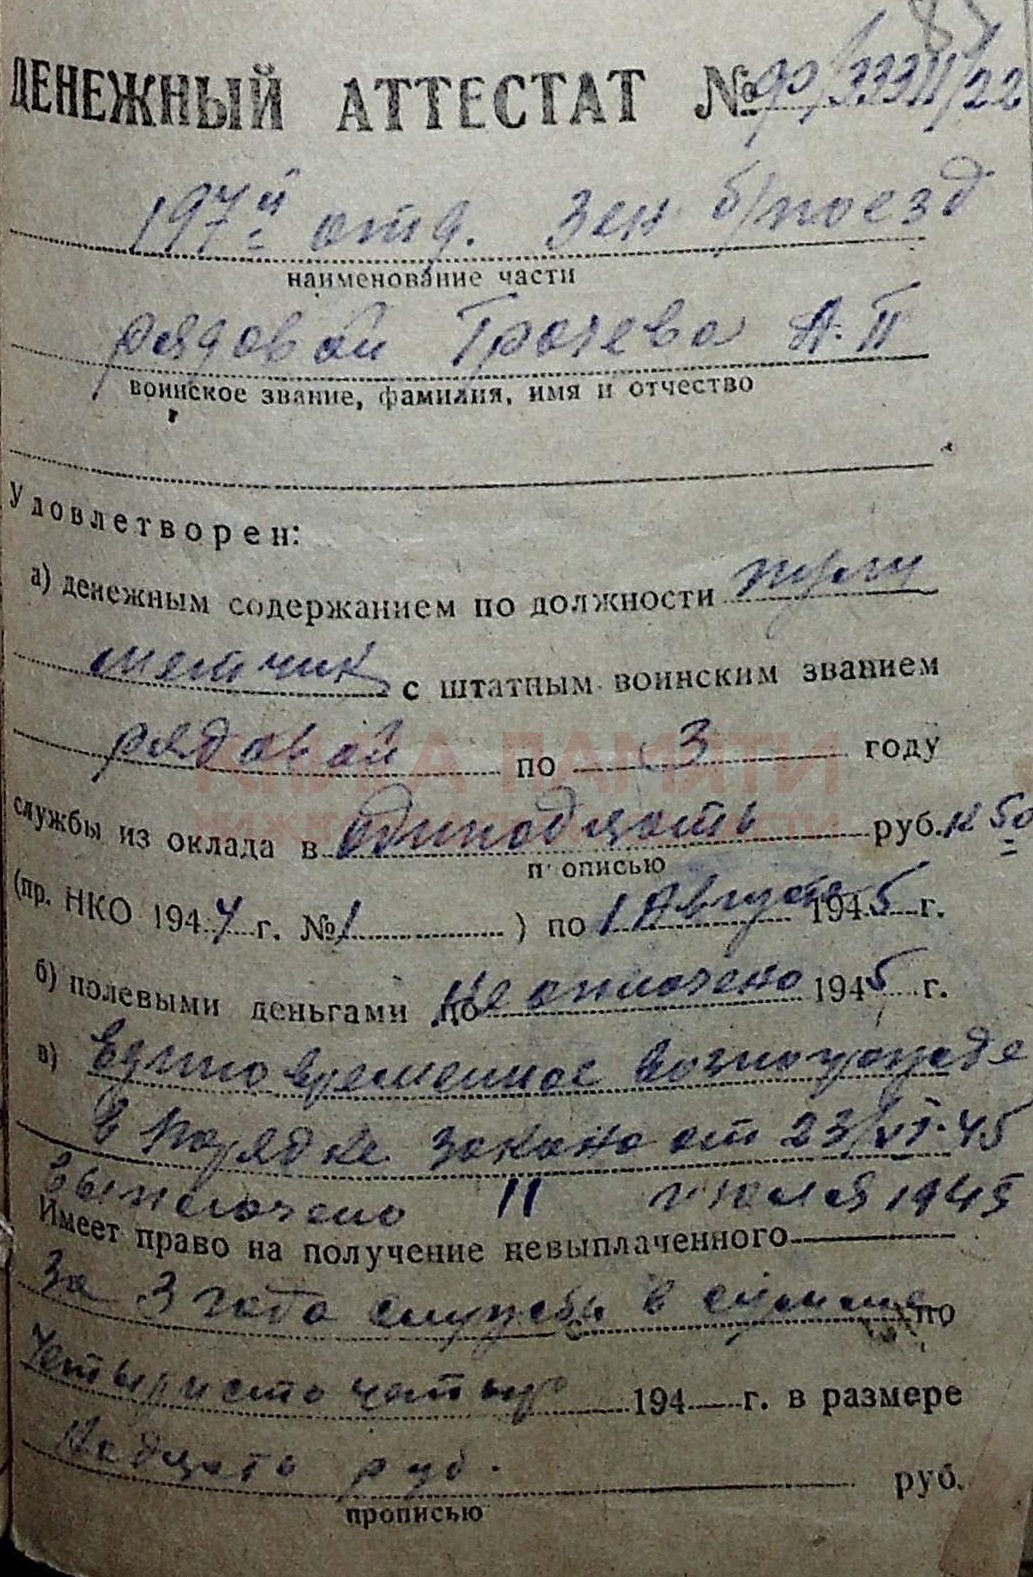 ДЕНЕЖНЫЙ АТТЕСТАТ № 90/33311/22
197й отд. Зен б/поезд
наименование части
рядовой Грачева А.П
воинское звание, фамилия, имя и отчество
Удовлетворен:
а) денежным содержанием по должности пуле
метчик с штатным воинским званием
рядовой по 3 году
службы из оклада в одинадцать руб. к 50
прописью
(пр. НКО 1944 г. № 1 ) по 1 Августа 1945 г.
б) полевыми деньгами по Не оплочено 1945 г.
в) Единовременное вознагражде
в порядке закона от 23/VI-45
выплочено 11 июля 1945
Имеет право на получение невыплаченного
За 3 года службы в сумме по
Четыриста четыр 194 г. в размере
надцать руб. руб.
прописью
КНИГА ПАМЯТИ